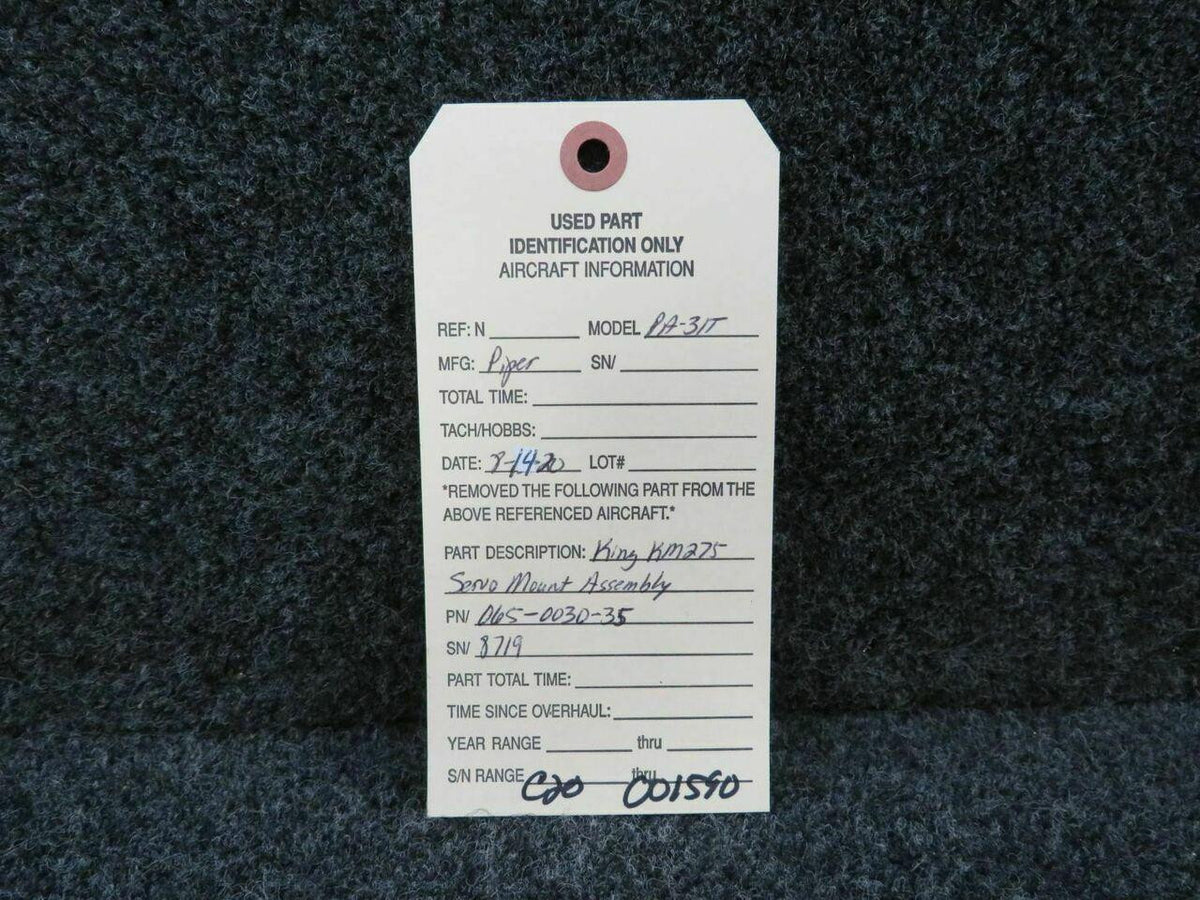 USED PART
IDENTIFICATION ONLY
AIRCRAFT INFORMATION
REF: N MODEL PA-31T
MFG: Piper SN/
TOTAL TIME:
TACH/HOBBS:
DATE: 8-14-20 LOT#
*REMOVED THE FOLLOWING PART FROM THE
ABOVE REFERENCED AIRCRAFT.*
PART DESCRIPTION: King KM275
Servo Mount Assembly
PN/ 065-0030-35
SN/ 8719
PART TOTAL TIME:
TIME SINCE OVERHAUL:
YEAR RANGE thru
S/N RANGE thru
C20 001590